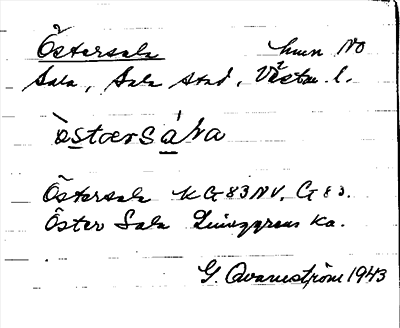 Östersala hmn NO
Sala, Sala stad, Västm. l.
östærsála
Östersala KG83NV, G83.
Öster Sala Ljunggrens Ka.
G. Qvarnström 1943